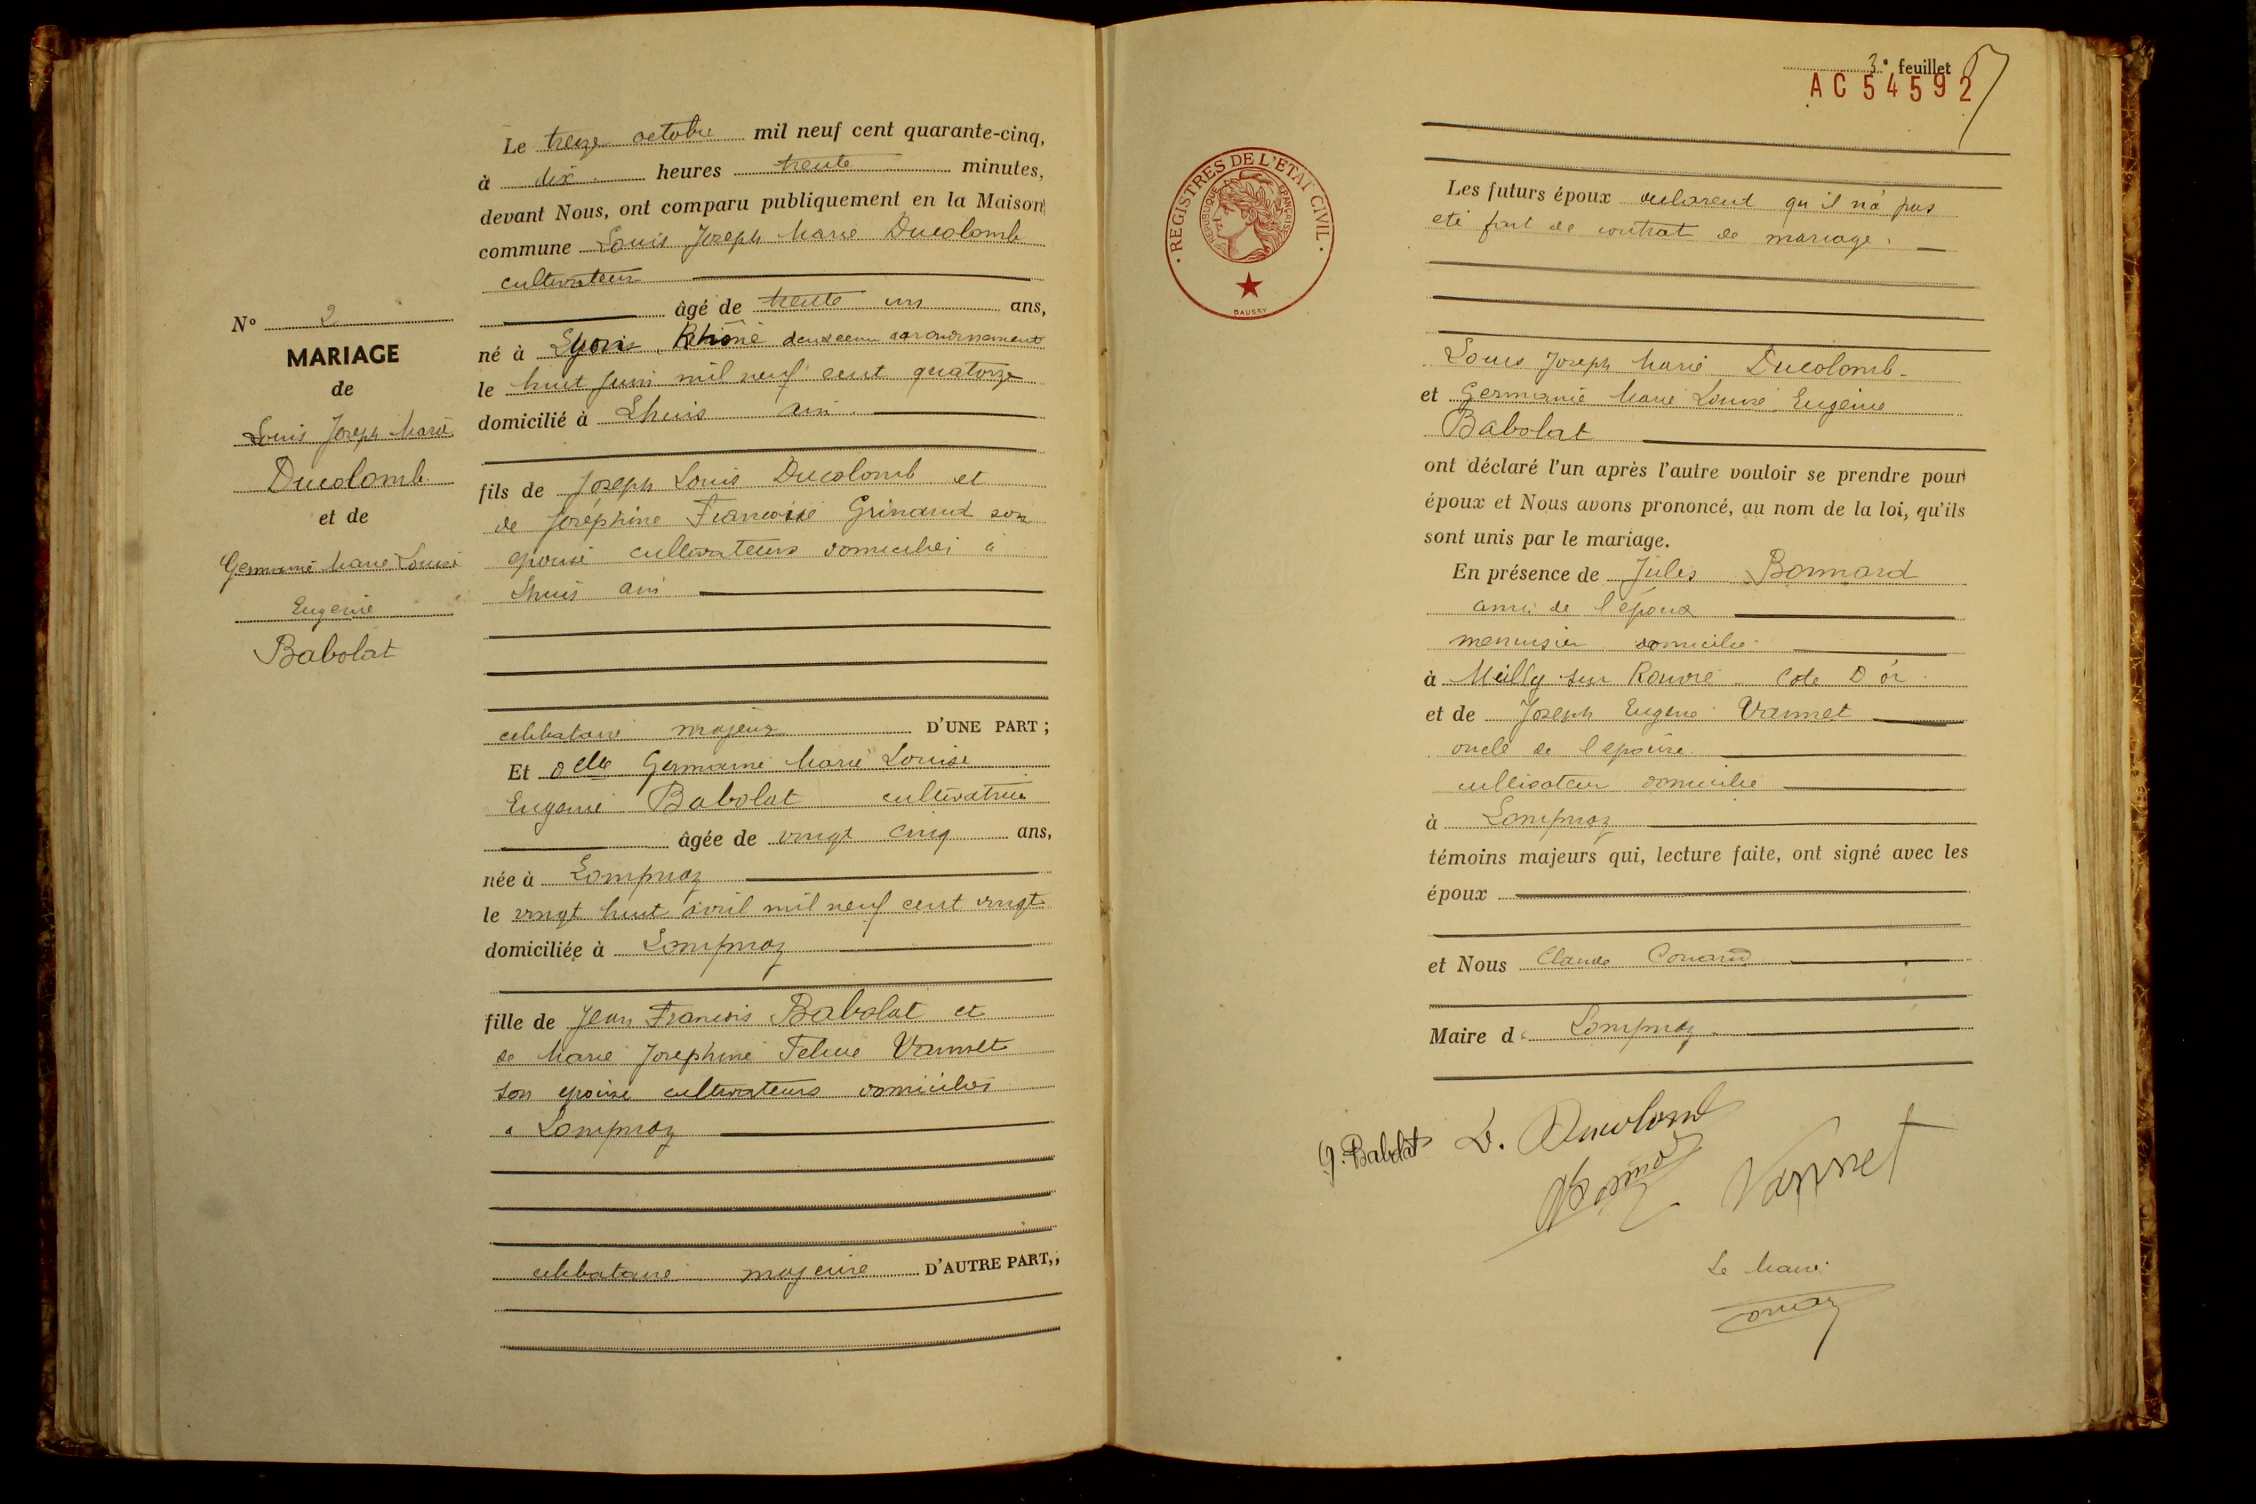 Le treize octobre mil neuf cent quarante-cinq,
à dix heures trente minutes,
devant Nous, ont comparu publiquement en la Maison
commune Louis Joseph Marie Ducolomb
cultivateur
âgé de trente un ans,
né à Lyon Rhône deuxieme arrondissement
le huit juin mil neuf cent quatorze
domicilié à Lhuis ain
fils de Joseph Louis Ducolomb et
de Joséphine Francoise Grinand son
epouse cultivateurs domiciliés à
Lhuis ain
celibataire majeur D'UNE PART ;
Et Delle Germaine Marie Louise
Eugenie Babolat cultivatrice
âgée de vingt cinq ans,
née à Lompnaz
le vingt huit avril mil neuf cent vingt
domiciliée à Lompnaz
fille de Jean Francois Babolat et
de Marie Josephine Feline Vannet
son epouse cultivateurs domiciliés
a Lompnaz
celibataire majeure D'AUTRE PART,;
N° 2
MARIAGE
de
Louis Joseph Marie
Ducolomb
et de
Germaine Marie Louise
Eugenie
Babolat
3e feuillet
AC 54592
REGISTRES DE L'ETAT CIVIL
REPUBLIQUE FRANÇAISE
DAUSSY
Les futurs époux declarent qu'il n'a pas
eté fait de contrat de mariage.
Louis Joseph Marie Ducolomb
et Germaine Marie Louise Eugenie
Babolat
ont déclaré l'un après l'autre vouloir se prendre pour
époux et Nous avons prononcé, au nom de la loi, qu'ils
sont unis par le mariage.
En présence de Jules Bonnard
ami de l'époux
menuisier domicilié
à Meilly sur Rouvre Cote D'or
et de Joseph Eugene Vannet
oncle de l'epouse
cultivateur domicilié
à Lompnaz
témoins majeurs qui, lecture faite, ont signé avec les
époux
et Nous Claude
Maire de Lompnaz
G. Babolat L. Ducolomb
Vannet
Le Maire